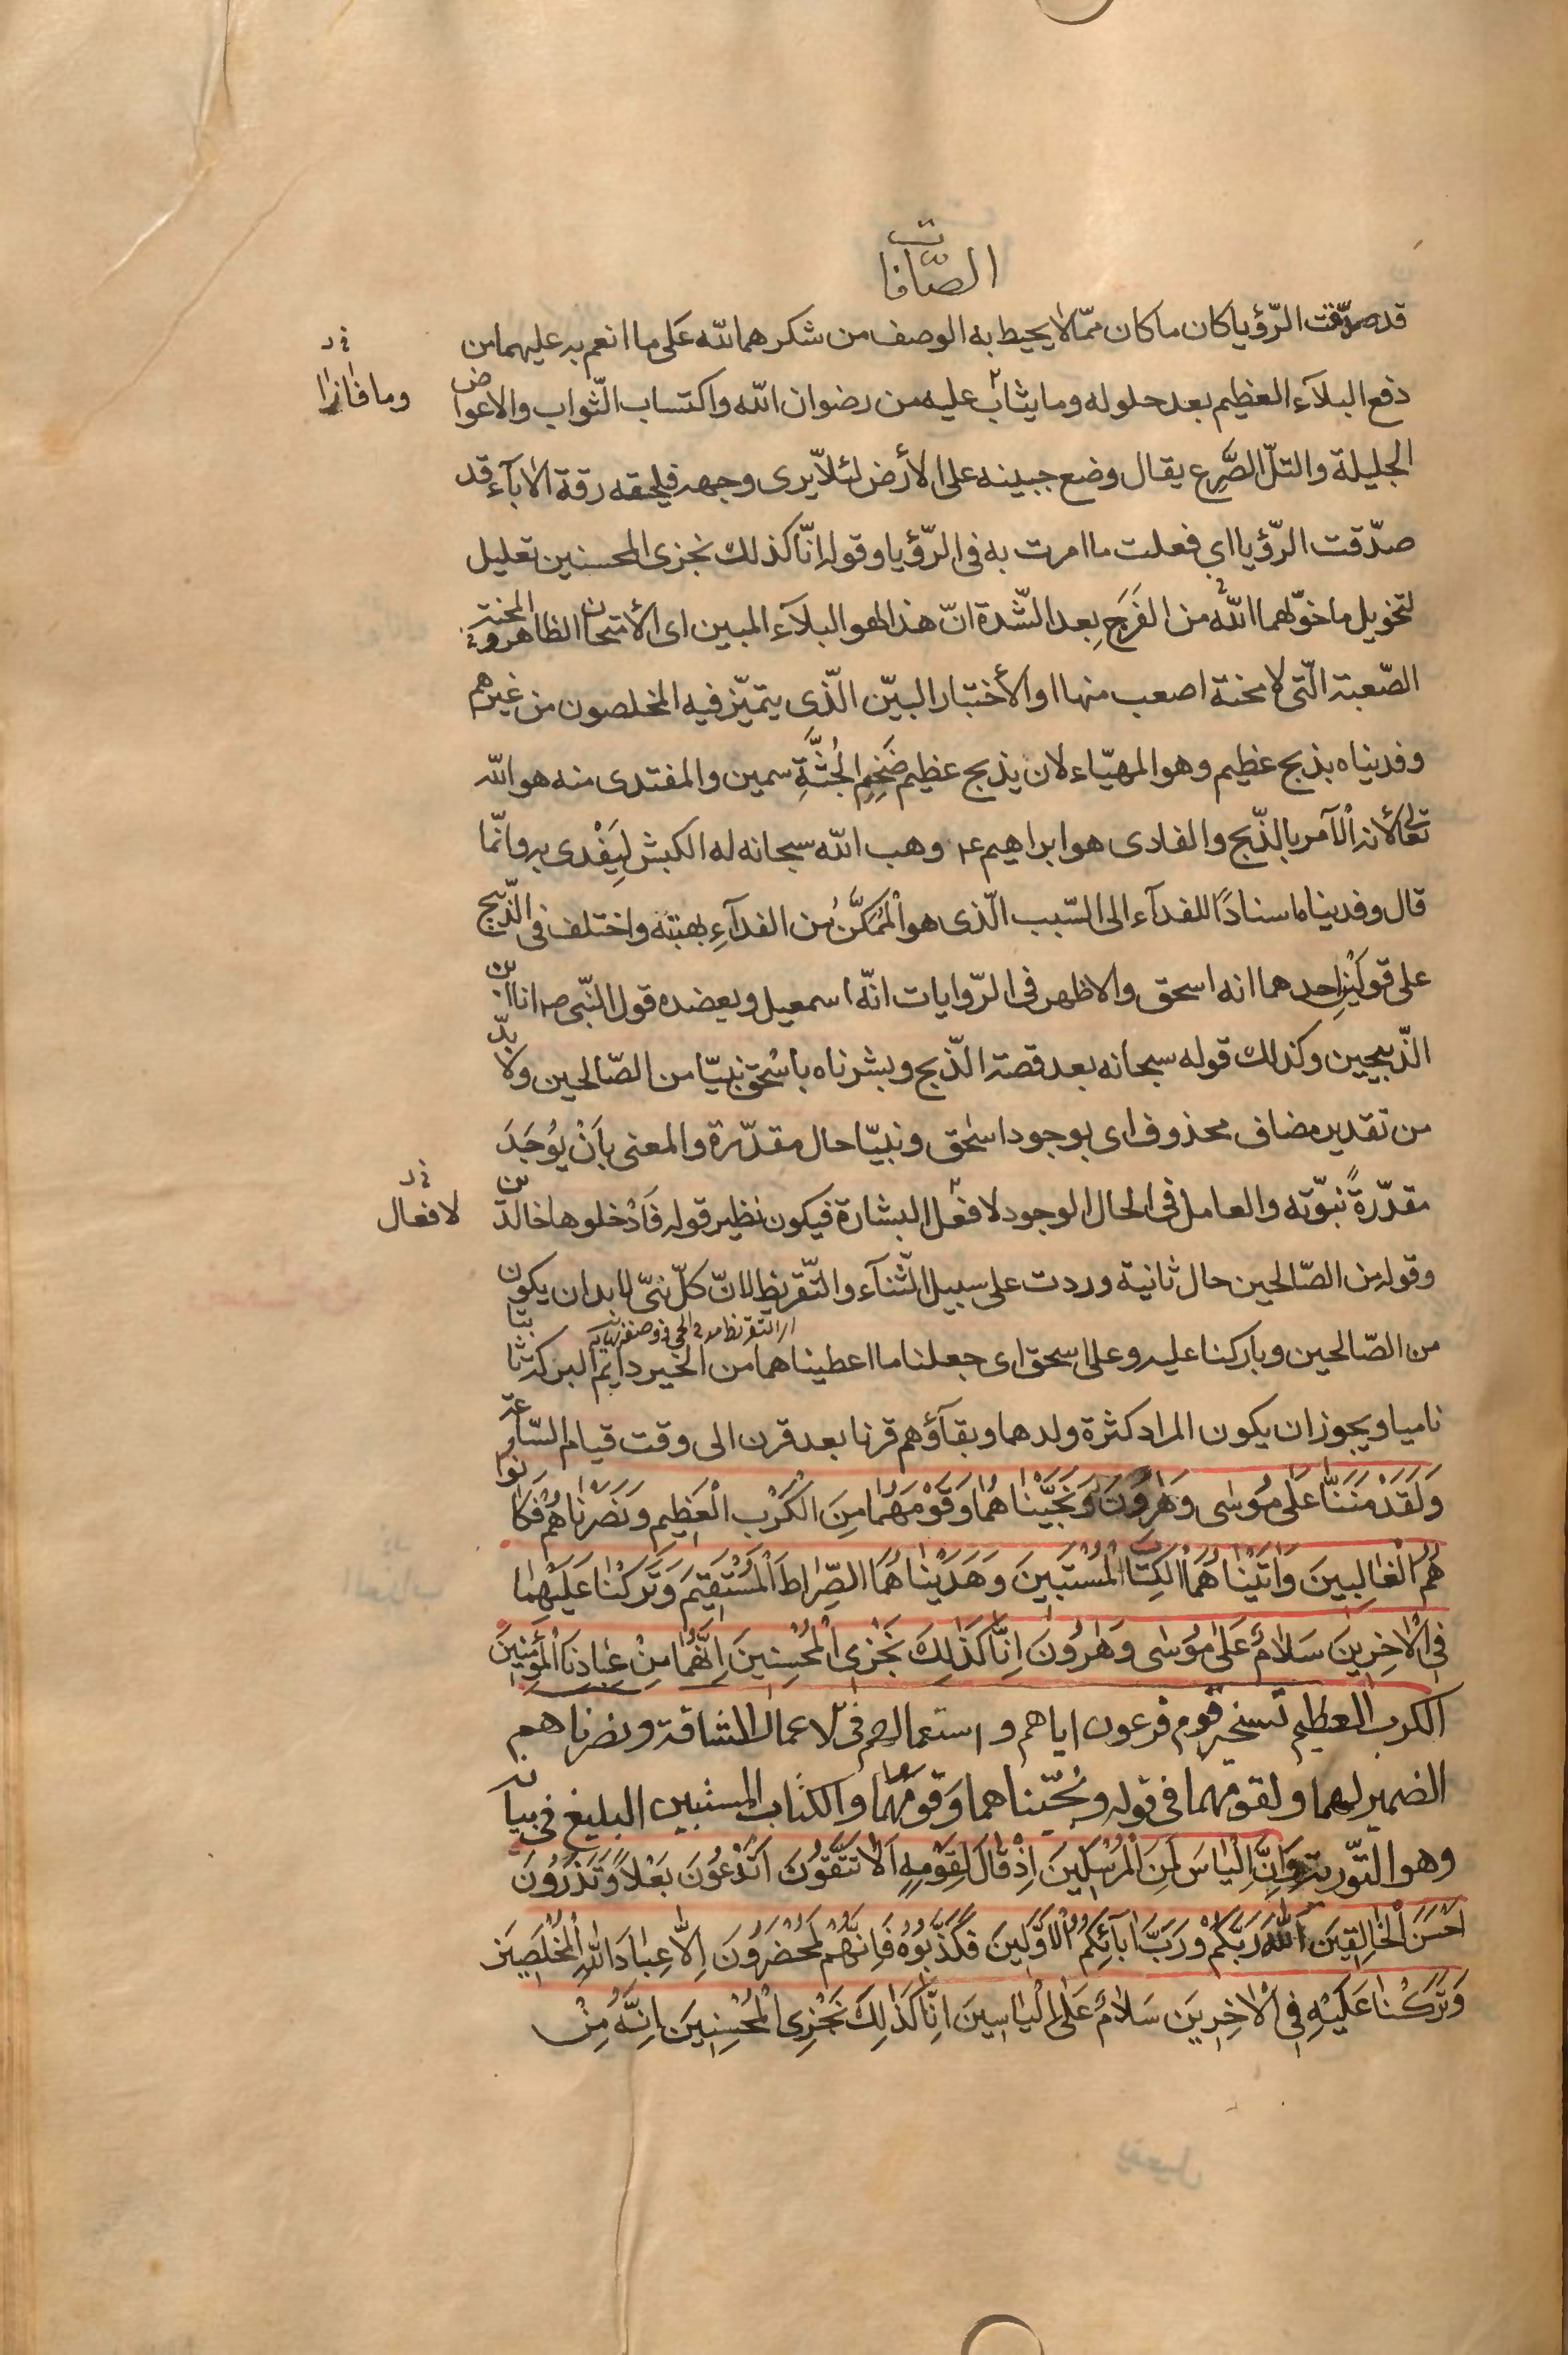 الصّافات
قد صدّقت الرّؤيا كان ما كان ممّا لا يحيط به الوصف من شكرهما لله على ما انعم به عليهما من
دفع البلآء العظيم بعد حلوله وما يثاب عليه من رضوان الله واكتساب الثّواب والاعواض
وما فازا
الجليلة والتلّ الصَّرع يقال وضع جبينه على الأرض لئلاّ يرى وجهه فيلحقه رقة الاٰبآء قد
صدّقت الرّؤيا اي فعلت ما امرت به فى الرّؤيا وقوله انّا كذلك نجزى المحسنين تعليل
لتخويل ما خوّلهما الله من الفَرَجِ بعد الشّدة انّ هذا لهو البلآء المبين اى الأمتحان الظاهر والمحنة
الصّعبة الّتى لا محنة اصعب منها او الأختبار البيّن الّذى يتميّز فيه المخلصون من غيرهم
وفديناه بذبح عظيم وهو المهيّاء لان يذبح عظيم ضَخِمِ الجُثَّةِ سمين والمفتدى منه هو الله
تعالى لأنه الآمر بالذّبح والفادى هو ابراهيم ع وهب الله سبحانه له الكبش لِيَفْدى به وانّما
قال وفديناه اسنادًا للفدآء الى السّبب الّذى هو الْمُمَكَّنُ من الفدآءِ بهبته واختلف فى الذّبيح
على قولَيْنِ احدهما انه اسحق والاظهر فى الرّوايات انّه اسمعيل ويعضده قول النّبى ص انا ابن
الذّبيحين وكذلك قوله سبحانه بعد قصة الذّبح وبشرناه باسْحٰق نبيّا من الصّالحين ولا بدّ
من تقدير مضاف محذوف اى بوجود اسٰحق ونبيّا حال مقدّرة والمعنى بِاَنْ يُوجَدَ
مقدّرةً نبوّته والعامل فى الحال الوجود لا فعل البشارة فيكون نظير قوله فَادْخلوها خالدين
لا فعال
وقوله من الصّالحين حال ثانية وردت على سبيل الثّنآء والتّقريظ لانّ كلّ نبىّ لابد ان يكون
من الصّالحين وباركنا عليه وعلى اسحق اى جعلنا ما اعطيناهما من الخير دايم البركة ثابتا
ناميا ويجوز ان يكون المراد كثرة ولدهما وبقآؤهم قرنا بعد قرن الى وقت قيام السّاعة
وَلَقَدْ مَنَنَّا عَلىٰ مُوسٰى وَهٰرُونَ وَنَجَّيْنٰاهُمٰا وَقَوْمَهُمٰا مِنَ الْكَرْبِ الْعَظيمِ وَنَصَرْنٰاهُمْ فَكٰانُوا
هُمُ الْغٰالِبينَ وَاٰتَيْنٰاهُمَا الْكِتٰابَ الْمُسْتَبينَ وَهَدَيْنٰاهُمَا الصِّرٰاطَ الْمُسْتَقيمَ وَتَرَكْنٰا عَلَيْهِمٰا
فِى الْاٰخِرينَ سَلاٰمٌ عَلىٰ مُوسٰى وَهٰرُونَ اِنّٰا كَذٰلِكَ نَجْزِى الْمُحْسِنينَ اِنَّهُمٰا مِنْ عِبٰادِنَا الْمُؤْمِنينَ
الكرب العظيم تسخير قوم فرعون اياهم و استعمالهم فى الاعمال الشاقة ونصرناهم
الضمير لهما ولقومهما فى قوله ونجّيناهما وقومهما والكتاب المستبين البليغ فى بيانه
وهو التّورية وَاِنَّ اِلْيٰاسَ لَمِنَ الْمُرْسَلينَ اِذْ قٰالَ لِقَوْمِهِ اَلاٰ تَتَّقُونَ اَتَدْعُونَ بَعْلاً وَتَذَرُونَ
اَحْسَنَ الْخٰالِقينَ اَللهَ رَبَّكُمْ وَرَبَّ اٰبآئِكُمُ الْاَوَّلينَ فَكَذَّبُوهُ فَاِنَّهُمْ لَمُحْضَرُونَ اِلاّٰ عِبٰادَ اللهِ الْمُخْلَصينَ
وَتَرَكْنٰا عَلَيْهِ فِى الْاٰخِرينَ سَلاٰمٌ عَلىٰ اِلْيٰاسينَ اِنّٰا كَذٰلِكَ نَجْزِى الْمُحْسِنينَ اِنَّهُ مِنْ